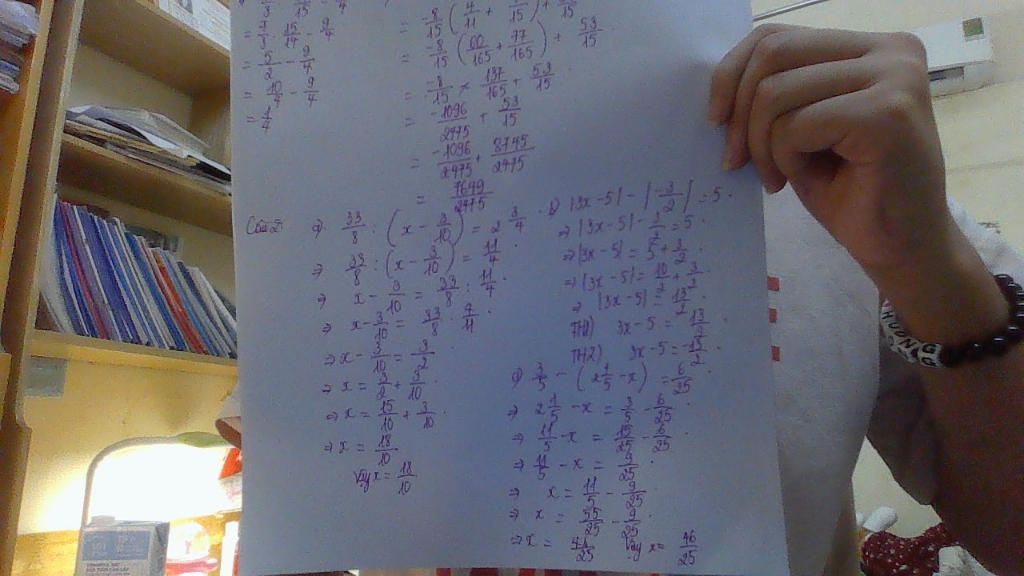 = 9/3 · 15/14 - 9/4
= 5/2 - 9/4
= 10/4 - 9/4
= 1/4
= -8/15 (60/165 + 77/165) + 53/15
= -8/15 × 137/165 + 53/15
= -1096/2475 + 53/15
= -1096/2475 + 8745/2475
= 7649/2475
Câu 2: a) 33/8 : (x - 3/10) = 2 3/4
⇒ 33/8 : (x - 3/10) = 11/4
⇒ x - 3/10 = 33/8 : 11/4
⇒ x - 3/10 = 33/8 · 4/11
⇒ x - 3/10 = 3/2
⇒ x = 3/2 + 3/10
⇒ x = 15/10 + 3/10
⇒ x = 18/10
Vậy x = 18/10
b) |3x - 5| - |-3/2| = 5
⇒ |3x - 5| - 3/2 = 5
⇒ |3x - 5| = 5 + 3/2
⇒ |3x - 5| = 10/2 + 3/2
⇒ |3x - 5| = 13/2
TH1) 3x - 5 = 13/2
TH2) 3x - 5 = -13/2
3/5 - (2 1/5 - x) = 6/25
⇒ 2 1/5 - x = 3/5 - 6/25
⇒ 11/5 - x = 15/25 - 6/25
⇒ 11/5 - x = 9/25
⇒ x = 11/5 - 9/25
⇒ x = 55/25 - 9/25
⇒ x = 46/25 Vậy x = 46/25